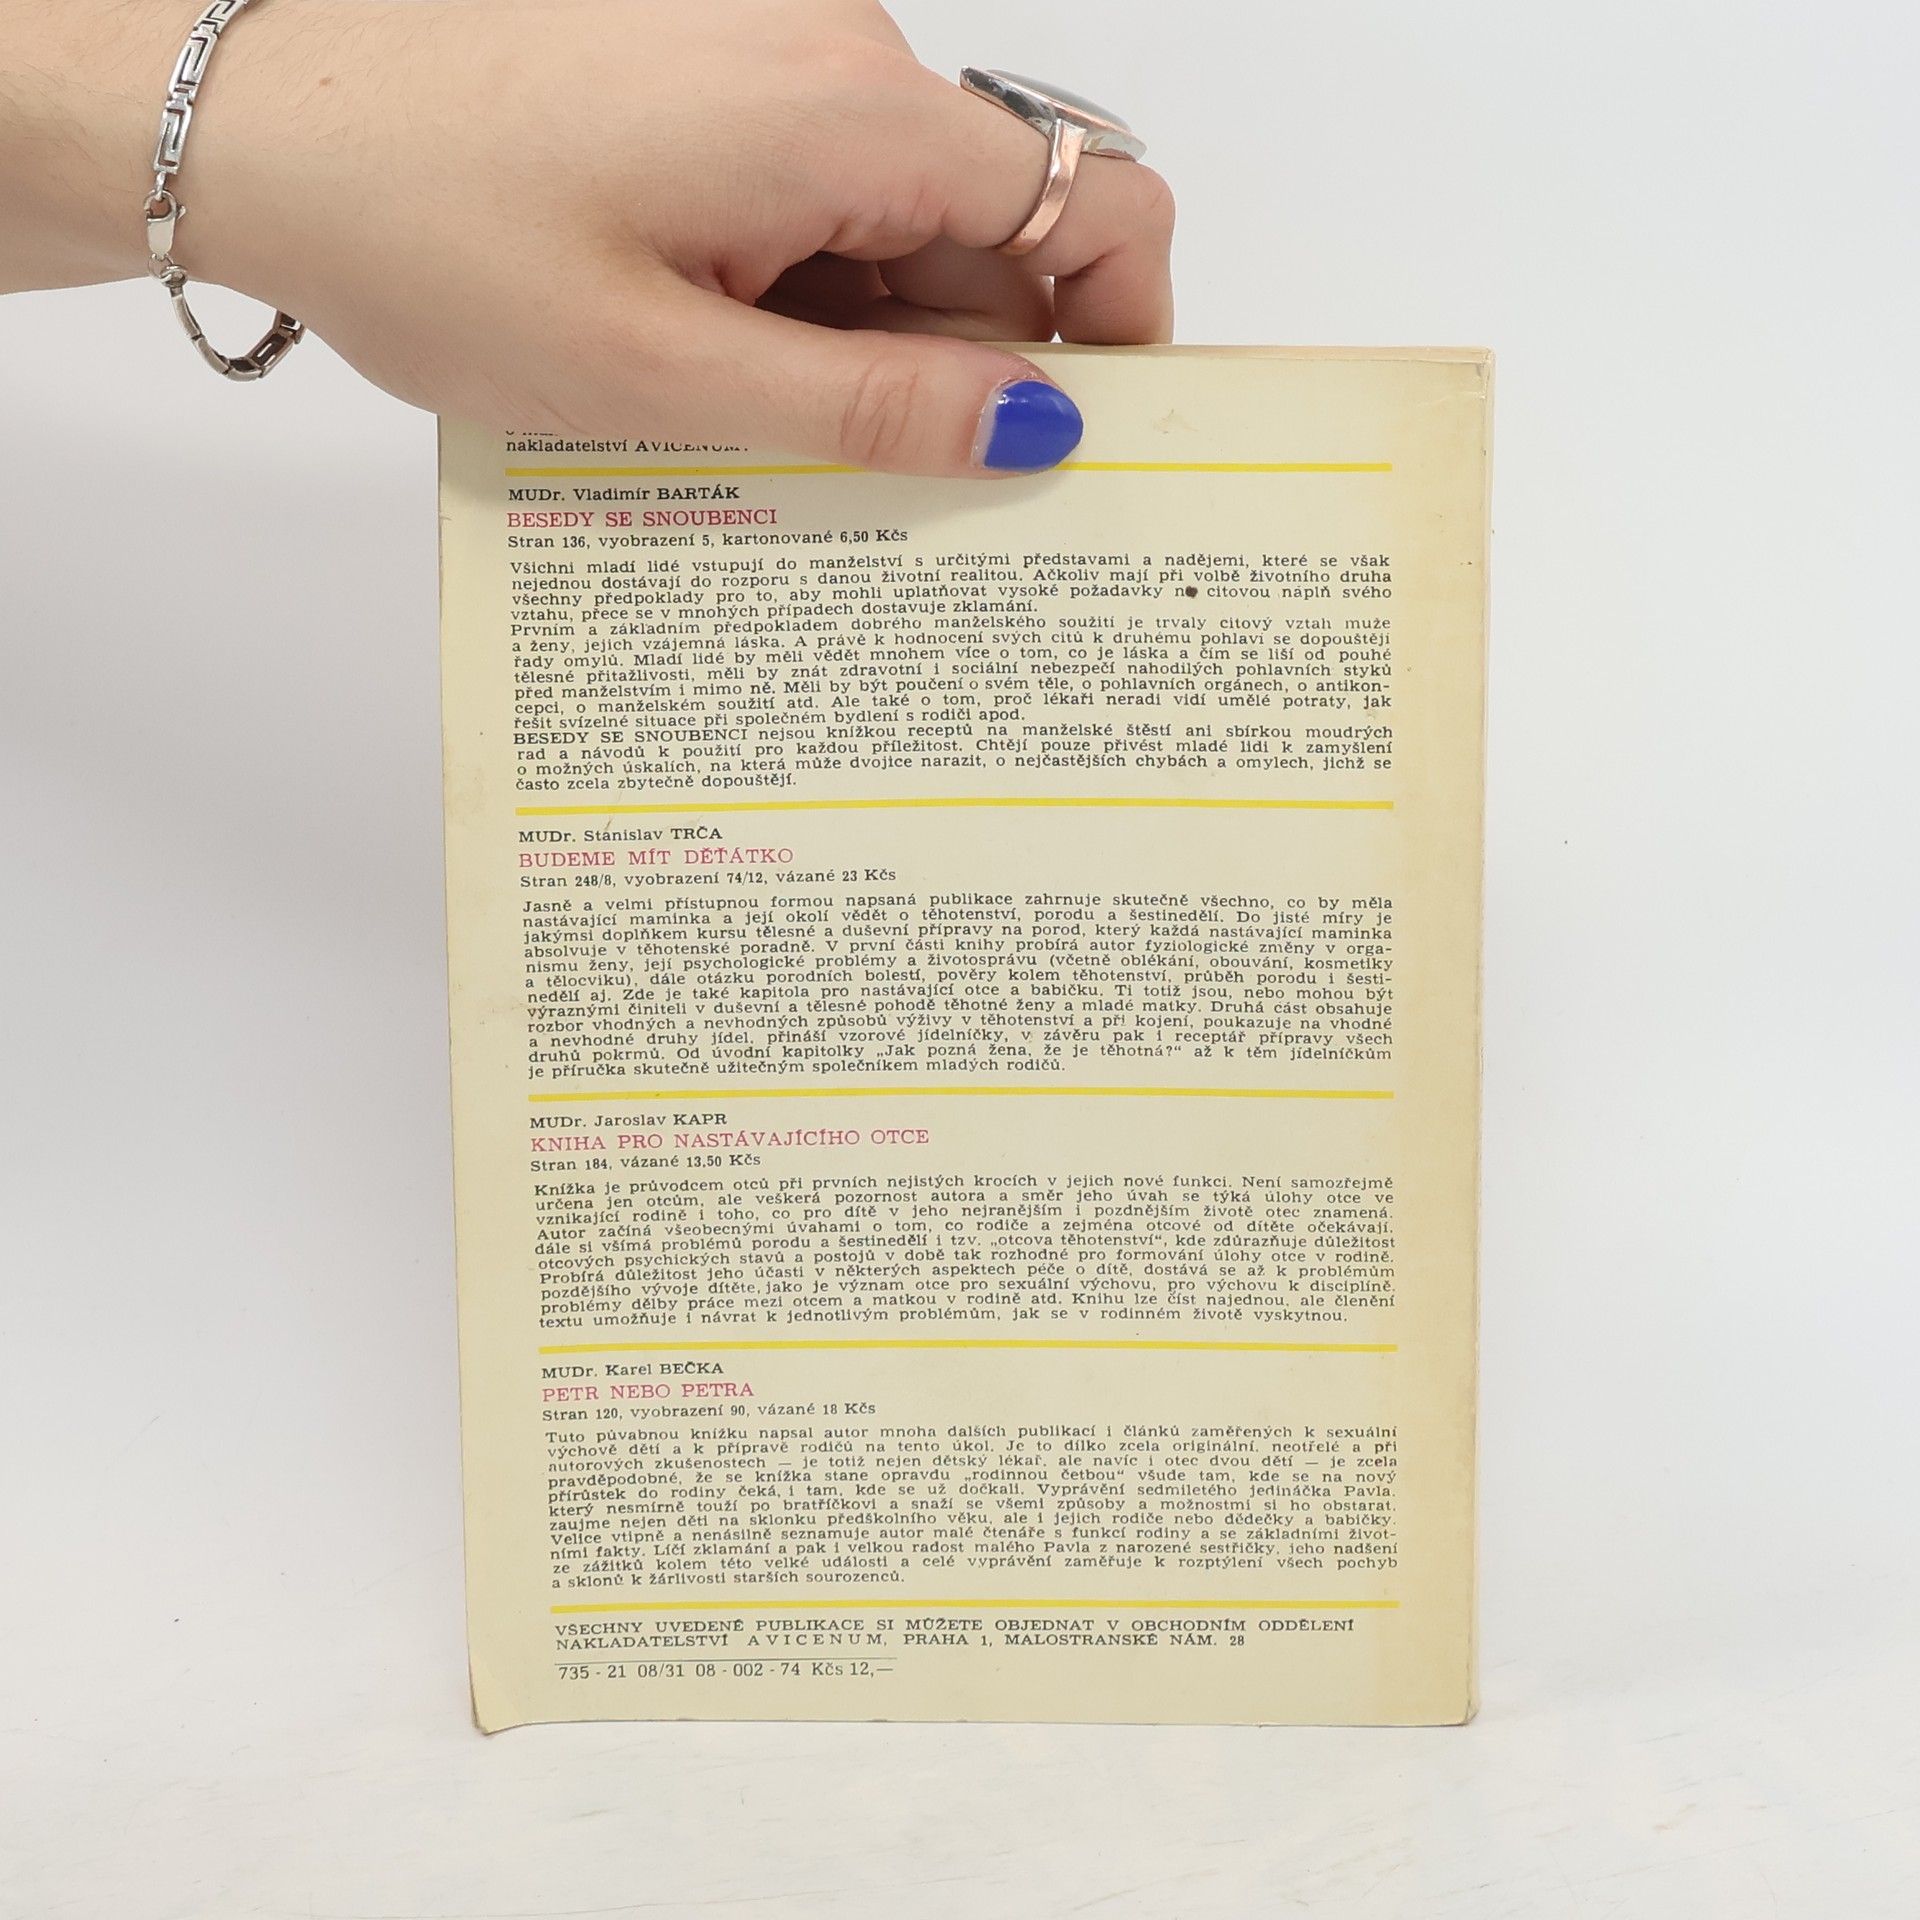 nakladatelství AVICENUM:
MUDr. Vladimír BARTÁK
BESEDY SE SNOUBENCI
Stran 136, vyobrazení 5, kartonované 6,50 Kčs
Všichni mladí lidé vstupují do manželství s určitými představami a nadějemi, které se však
nejednou dostávají do rozporu s danou životní realitou. Ačkoliv mají při volbě životního druha
všechny předpoklady pro to, aby mohli uplatňovat vysoké požadavky na citovou náplň svého
vztahu, přece se v mnohých případech dostavuje zklamání.
Prvním a základním předpokladem dobrého manželského soužití je trvalý citový vztah muže
a ženy, jejich vzájemná láska. A právě k hodnocení svých citů k druhému pohlaví se dopouštějí
řady omylů. Mladí lidé by měli vědět mnohem více o tom, co je láska a čím se liší od pouhé
tělesné přitažlivosti, měli by znát zdravotní i sociální nebezpečí nahodilých pohlavních styků
před manželstvím i mimo ně. Měli by být poučení o svém těle, o pohlavních orgánech, o antikon-
cepci, o manželském soužití atd. Ale také o tom, proč lékaři neradi vidí umělé potraty, jak
řešit svízelné situace při společném bydlení s rodiči apod.
BESEDY SE SNOUBENCI nejsou knížkou receptů na manželské štěstí ani sbírkou moudrých
rad a návodů k použití pro každou příležitost. Chtějí pouze přivést mladé lidi k zamyšlení
o možných úskalích, na která může dvojice narazit, o nejčastějších chybách a omylech, jichž se
často zcela zbytečně dopouštějí.
MUDr. Stanislav TRČA
BUDEME MÍT DĚŤÁTKO
Stran 248/8, vyobrazení 74/12, vázané 23 Kčs
Jasně a velmi přístupnou formou napsaná publikace zahrnuje skutečně všechno, co by měla
nastávající maminka a její okolí vědět o těhotenství, porodu a šestinedělí. Do jisté míry je
jakýmsi doplňkem kursu tělesné a duševní přípravy na porod, který každá nastávající maminka
absolvuje v těhotenské poradně. V první části knihy probírá autor fyziologické změny v orga-
nismu ženy, její psychologické problémy a životosprávu (včetně oblékání, obouvání, kosmetiky
a tělocviku), dále otázku porodních bolestí, pověry kolem těhotenství, průběh porodu i šesti-
nedělí aj. Zde je také kapitola pro nastávající otce a babičku. Ti totiž jsou, nebo mohou být
výraznými činiteli v duševní a tělesné pohodě těhotné ženy a mladé matky. Druhá část obsahuje
rozbor vhodných a nevhodných způsobů výživy v těhotenství a při kojení, poukazuje na vhodné
a nevhodné druhy jídel, přináší vzorové jídelníčky, v závěru pak i receptář přípravy všech
druhů pokrmů. Od úvodní kapitolky „Jak pozná žena, že je těhotná?“ až k těm jídelníčkům
je příručka skutečně užitečným společníkem mladých rodičů.
MUDr. Jaroslav KAPR
KNIHA PRO NASTÁVAJÍCÍHO OTCE
Stran 184, vázané 13,50 Kčs
Knížka je průvodcem otců při prvních nejistých krocích v jejich nové funkci. Není samozřejmě
určena jen otcům, ale veškerá pozornost autora a směr jeho úvah se týká úlohy otce ve
vznikající rodině i toho, co pro dítě v jeho nejranějším i pozdnějším životě otec znamená.
Autor začíná všeobecnými úvahami o tom, co rodiče a zejména otcové od dítěte očekávají,
dále si všímá problémů porodu a šestinedělí i tzv. „otcova těhotenství“, kde zdůrazňuje důležitost
otcových psychických stavů a postojů v době tak rozhodné pro formování úlohy otce v rodině.
Probírá důležitost jeho účasti v některých aspektech péče o dítě, dostává se až k problémům
pozdějšího vývoje dítěte, jako je význam otce pro sexuální výchovu, pro výchovu k disciplíně,
problémy dělby práce mezi otcem a matkou v rodině atd. Knihu lze číst najednou, ale členění
textu umožňuje i návrat k jednotlivým problémům, jak se v rodinném životě vyskytnou.
MUDr. Karel BEČKA
PETR NEBO PETRA
Stran 120, vyobrazení 90, vázané 18 Kčs
Tuto půvabnou knížku napsal autor mnoha dalších publikací i článků zaměřených k sexuální
výchově dětí a k přípravě rodičů na tento úkol. Je to dílko zcela originální, neotřelé a při
autorových zkušenostech — je totiž nejen dětský lékař, ale navíc i otec dvou dětí — je zcela
pravděpodobné, že se knížka stane opravdu „rodinnou četbou“ všude tam, kde se na nový
přírůstek do rodiny čeká, i tam, kde se už dočkali. Vyprávění sedmiletého jedináčka Pavla,
který nesmírně touží po bratříčkovi a snaží se všemi způsoby a možnostmi si ho obstarat,
zaujme nejen děti na sklonku předškolního věku, ale i jejich rodiče nebo dědečky a babičky.
Velice vtipně a nenásilně seznamuje autor malé čtenáře s funkcí rodiny a se základními život-
ními fakty. Líčí zklamání a pak i velkou radost malého Pavla z narozené sestřičky, jeho nadšení
ze zážitků kolem této velké události a celé vyprávění zaměřuje k rozptýlení všech pochyb
a sklonů k žárlivosti starších sourozenců.
VŠECHNY UVEDENÉ PUBLIKACE SI MŮŽETE OBJEDNAT V OBCHODNÍM ODDĚLENÍ
NAKLADATELSTVÍ AVICENUM, PRAHA 1, MALOSTRANSKÉ NÁM. 28
735 - 21 08/31 08 - 002 - 74 Kčs 12,—